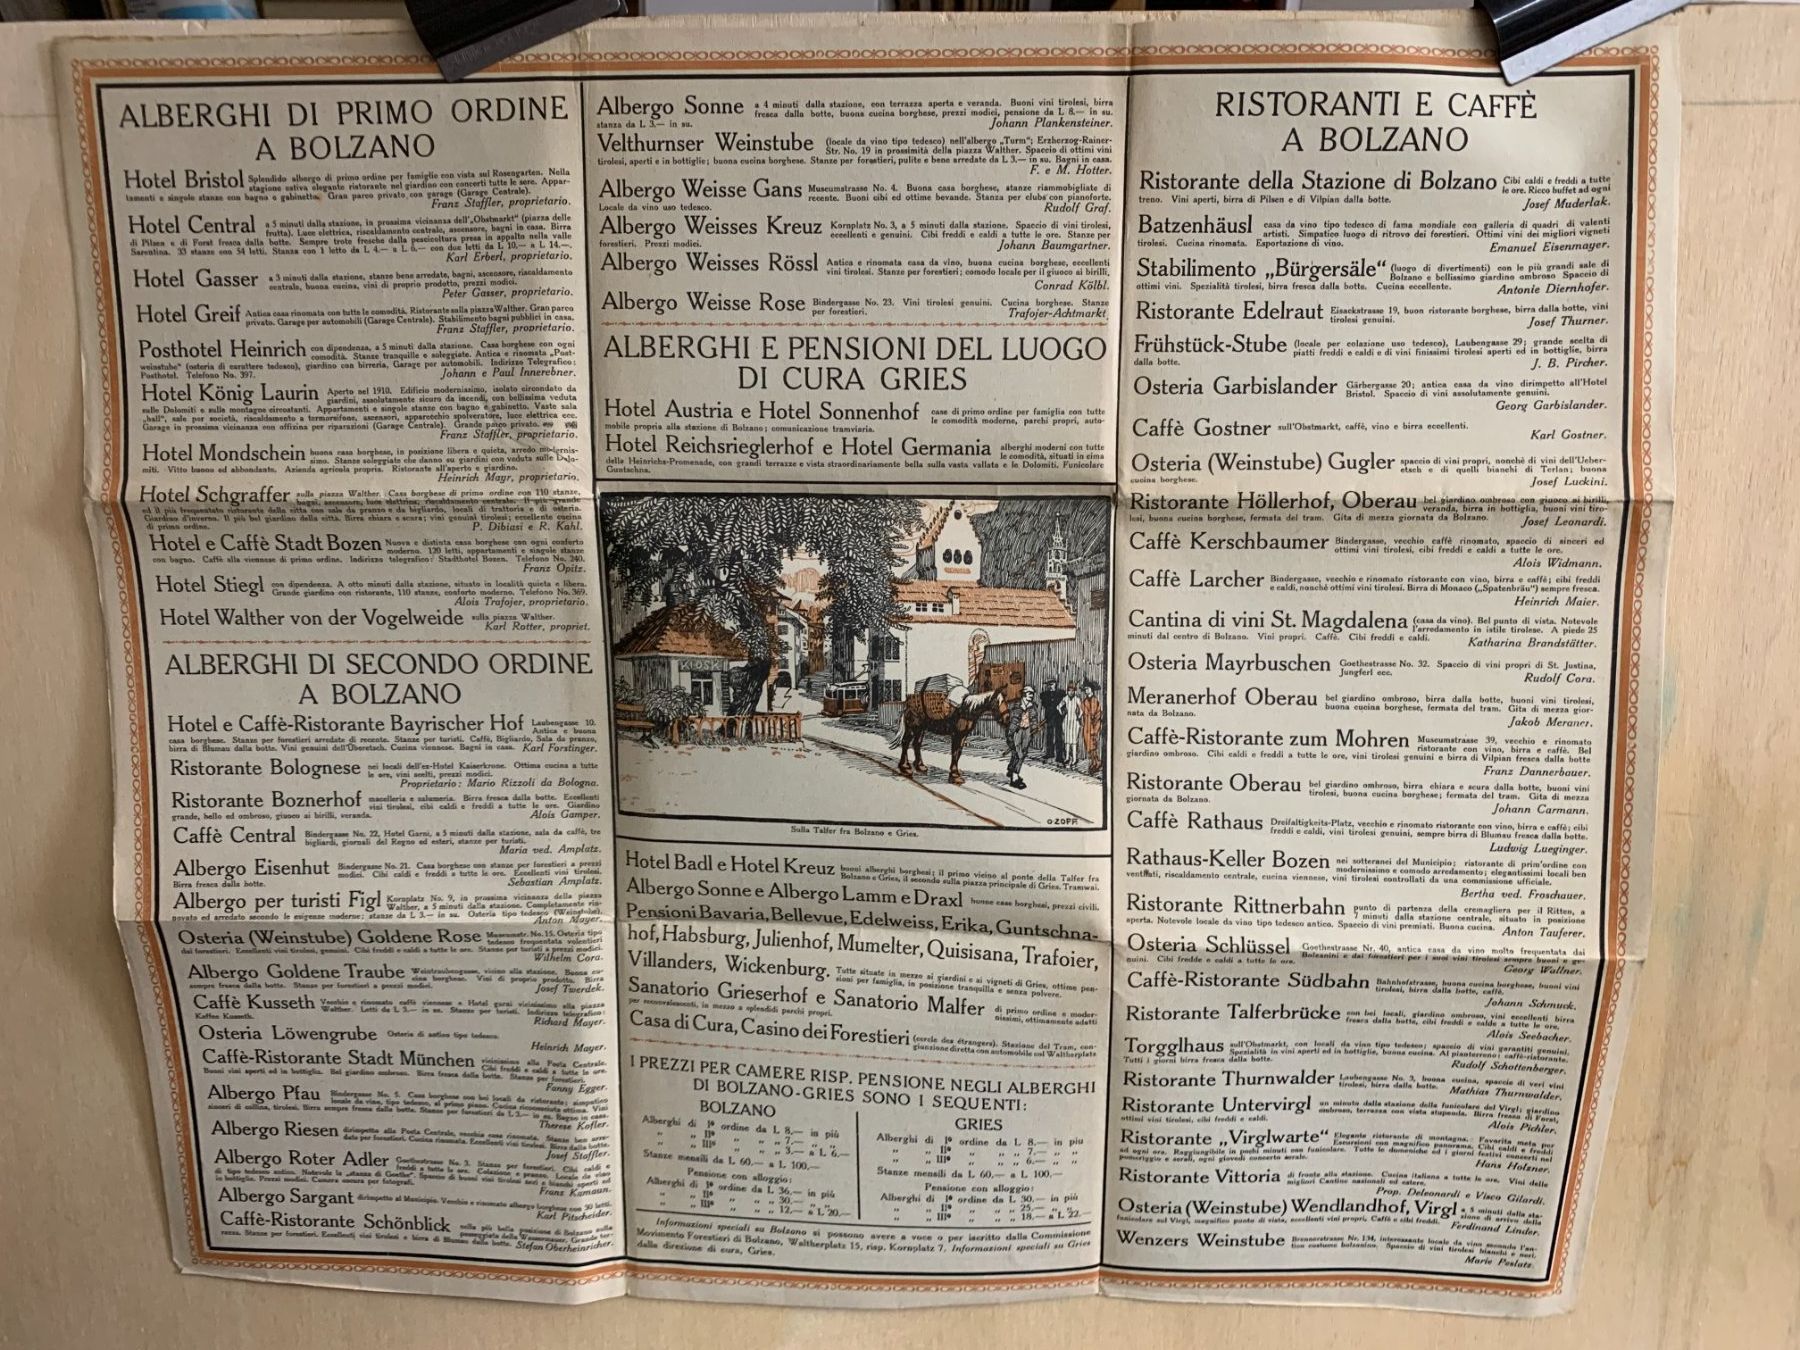 ALBERGHI DI PRIMO ORDINE
A BOLZANO
Hotel Bristol Splendido albergo di primo ordine per famiglie con vista sul Rosengarten. Nella
stagione estiva elegante ristorante nel giardino con concerti tutte le sere. Appar-
tamenti e singole stanze con bagno e gabinetto. Gran parco privato con garage (Garage Centrale).
Franz Staffler, proprietario.
Hotel Central a 5 minuti dalla stazione, in prossima vicinanza dell'„Obstmarkt“ (piazza delle
frutta). Luce elettrica, riscaldamento centrale, ascensore, bagni in casa. Birra
di Pilsen e di Forst fresca dalla botte. Sempre trote fresche dalla pescicoltura presa in appalto nella valle
Sarentina. 33 stanze con 54 letti. Stanza con 1 letto da L 4.— a L 6.— con due letti da L 10.— a L 14.—.
Karl Erberl, proprietario.
Hotel Gasser a 3 minuti dalla stazione, stanze bene arredate, bagni, ascensore, riscaldamento
centrale, buona cucina, vini di proprio prodotto, prezzi modici.
Peter Gasser, proprietario.
Hotel Greif Antica casa rinomata con tutte le comodità. Ristorante sulla piazza Walther. Gran parco
privato. Garage per automobili (Garage Centrale). Stabilimento bagni pubblici in casa.
Franz Staffler, proprietario.
Posthotel Heinrich con dipendenza, a 5 minuti dalla stazione. Casa borghese con ogni
comodità. Stanze tranquille e soleggiate. Antica e rinomata „Post-
weinstube“ (osteria di carattere tedesco), giardino con birreria, Garage per automobili. Indirizzo Telegrafico:
Posthotel. Telefono No. 397.
Johann e Paul Innerebner.
Hotel König Laurin Aperto nel 1910. Edificio modernissimo, isolato circondato da
giardini, assolutamente sicuro da incendi, con bellissima veduta
sulle Dolomiti e sulle montagne circostanti. Appartamenti e singole stanze con bagno e gabinetto. Vaste sala
„hall“, sale per società, riscaldamento a termorsifone, ascensori, apparecchio spolveratore, luce elettrica ecc.
Garage in prossima vicinanza con offizina per riparazioni (Garage Centrale). Grande parco privato.
Franz Staffler, proprietario.
Hotel Mondschein buona casa borghese, in posizione libera e quieta, arredo modernis-
simo. Stanze soleggiate che danno su giardini con veduta sulle Dolo-
miti. Vitto buono ed abbondante. Azienda agricola propria. Ristorante all'aperto e giardino.
Heinrich Mayr, proprietario.
Hotel Schgraffer sulla piazza Walther. Casa borghese di primo ordine con 110 stanze,
bagni, ascensore, luce elettrica, riscaldamento centrale. Il più grande
ed il più frequentato ristorante della città con sale da pranzo e da bigliardo, locali di trattoria e di osteria.
Giardino d'inverno. Il più bel giardino della città. Birra chiara e scura; vini genuini tirolesi; eccellente cucina
di primo ordine.
P. Dibiasi e R. Kahl.
Hotel e Caffè Stadt Bozen Nuova e distinta casa borghese con ogni conforto
moderno. 120 letti, appartamenti e singole stanze
con bagno. Caffè alla viennese di primo ordine. Indirizzo telegrafico: Stadthotel Bozen. Telefono No. 240.
Franz Opitz.
Hotel Stiegl con dipendenza. A otto minuti dalla stazione, situato in località quieta e libera.
Grande giardino con ristorante, 110 stanze, conforto moderno. Telefono No. 369.
Alois Trafojer, proprietario.
Hotel Walther von der Vogelweide sulla piazza Walther.
Karl Rotter, propriet.
ALBERGHI DI SECONDO ORDINE
A BOLZANO
Hotel e Caffè-Ristorante Bayrischer Hof Laubengasse 10.
Antica e buona
casa borghese. Stanze per forestieri arredate di recente. Stanze per turisti. Caffè, Bigliardo, Sala da pranzo,
birra di Blumau dalla botte. Vini genuini dell'Oberetsch. Cucina viennese. Bagni in casa. Karl Forstinger.
Ristorante Bolognese nei locali dell'ex-Hotel Kaiserkrone. Ottima cucina a tutte
le ore, vini scelti, prezzi modici.
Proprietario: Mario Rizzoli da Bologna.
Ristorante Boznerhof macelleria e salumeria. Birra fresca dalla botte. Eccellenti
vini tirolesi, cibi caldi e freddi a tutte le ore. Giardino
grande, bello ed ombroso, giuoco ai birilli, veranda.
Alois Gamper.
Caffè Central Bindergasse No. 22, Hotel Garni, a 5 minuti dalla stazione, sala da caffè, tre
bigliardi, giornali del Regno ed esteri, stanze per turisti.
Maria ved. Amplatz.
Albergo Eisenhut Bindergasse No. 21. Casa borghese con stanze per forestieri a prezzi
modici. Cibi caldi e freddi a tutte le ore. Eccellenti vini tirolesi.
Birra fresca dalla botte.
Sebastian Amplatz.
Albergo per turisti Figl Kornplatz No. 9, in prossima vicinanza della piazza
Walther, a 5 minuti dalla stazione. Completamente rin-
novato ed arredato secondo le esigenze moderne; stanze da L 3.— in su. Osteria tipo tedesco (Weinstube).
Anton Mayer.
Osteria (Weinstube) Goldene Rose Museumstr. No. 15. Osteria tipo
tedesco frequentata volentieri
dai forestieri. Eccellenti vini tirolesi, genuini. Cibi caldi e freddi a tutte le ore. Stanze per turisti a prezzi modici.
Wilhelm Cora.
Albergo Goldene Traube Weintraubengasse, vicino alla stazione. Buona cu-
cina borghese. Vini di proprio prodotto. Birra
sempre fresca dalla botte. Stanze per forestieri a prezzi modici.
Josef Twerdek.
Caffè Kusseth Vecchio e rinomato caffè viennese e Hotel garni vicinissimo alla piazza
Walther. Letti da L 3.— in su. Stanze per turisti. Indirizzo telegrafico:
Kaffee Kusseth.
Richard Mayer.
Osteria Löwengrube Osteria di antico tipo tedesco.
Heinrich Mayer.
Caffè-Ristorante Stadt München vicinissimo alla Posta Centrale.
Cibi freddi e caldi a tutte le ore.
Buoni vini aperti ed in bottiglia. Bel giardino ombroso. Birra fresca dalla botte. Stanze per forestieri.
Fanny Egger.
Albergo Pfau Bindergasse No. 5. Casa borghese con bei locali da ristorante; simpatico
locale da vino, tipo tedesco, al primo piano. Cucina riconosciuta ottima. Vini
sinceri di collina, tirolesi. Birra sempre fresca dalla botte. Stanze per forestieri da L 3.— in su. Bagno in casa.
Therese Kofler.
Albergo Riesen dirimpetto alla Posta Centrale, vecchia casa rinomata. Stanze ben arre-
date per forestieri. Cucina rinomata. Eccellenti vini tirolesi. Birra dalla botte.
Josef Staffler.
Albergo Roter Adler Goethestrasse No. 3. Stanze per forestieri. Cibi caldi e
freddi a tutte le ore. Colazione e pranzo. Locale da vino
di tipo tedesco antico. Notevole la „stanza di Goethe“. Spaccio di vini tirolesi neri e bianchi aperti ed
in bottiglie. Prezzi modici. Camera oscura per fotografi.
Franz Kamaun.
Albergo Sargant dirimpetto al Municipio. Vecchio e rinomato albergo borghese con 30 letti.
Karl Pitscheider.
Caffè-Ristorante Schönblick nella più bella posizione di Bolzano sulla
passeggiata della Wassermauer. Grande ter-
razza. Stanze per forestieri. Eccellenti vini tirolesi e birra di Blumau dalla botte. Stefan Oberheinricher.
Albergo Sonne a 4 minuti dalla stazione, con terrazza aperta e veranda. Buoni vini tirolesi, birra
fresca dalla botte, buona cucina borghese, prezzi modici, pensione da L 8.— in su.
stanza da L 3.— in su.
Johann Plankensteiner.
Velthurnser Weinstube (locale da vino tipo tedesco) nell'albergo „Turm“; Erzherzog-Rainer-
Str. No. 19 in prossimità della piazza Walther. Spaccio di ottimi vini
tirolesi, aperti e in bottiglie; buona cucina borghese. Stanze per forestieri, pulite e bene arredate da L 3.— in su. Bagni in casa.
F. e M. Hotter.
Albergo Weisse Gans Museumstrasse No. 4. Buona casa borghese, stanze riammobigliate di
recente. Buoni cibi ed ottime bevande. Stanza per clubs con pianoforte.
Locale da vino uso tedesco.
Rudolf Graf.
Albergo Weisses Kreuz Kornplatz No. 3, a 5 minuti dalla stazione. Spaccio di vini tirolesi,
eccellenti e genuini. Cibi freddi e caldi a tutte le ore. Stanze per
forestieri. Prezzi modici.
Johann Baumgartner.
Albergo Weisses Rössl Antica e rinomata casa da vino, buona cucina borghese, eccellenti
vini tirolesi. Stanze per forestieri; comodo locale per il giuoco ai birilli.
Conrad Kölbl.
Albergo Weisse Rose Bindergasse No. 23. Vini tirolesi genuini. Cucina borghese. Stanze
per forestieri.
Trafojer-Achtmarkt.
ALBERGHI E PENSIONI DEL LUOGO
DI CURA GRIES
Hotel Austria e Hotel Sonnenhof case di primo ordine per famiglia con tutte
le comodità moderne, parchi propri, auto-
mobile propria alla stazione di Bolzano; comunicazione tramviaria.
Hotel Reichsrieglerhof e Hotel Germania alberghi moderni con tutte
le comodità, situati in cima
delle Heinrichs-Promenade, con grandi terrazze e vista straordinariamente bella sulla vasta vallata e le Dolomiti. Funicolare
Guntschna.
KIOSK
O ZOPF
Sulla Talfer fra Bolzano e Gries.
Hotel Badl e Hotel Kreuz buoni alberghi borghesi; il primo vicino al ponte della Talfer fra
Bolzano e Gries, il secondo sulla piazza principale di Gries. Tramwai.
Albergo Sonne e Albergo Lamm e Draxl buone case borghesi, prezzi civili.
Pensioni Bavaria, Bellevue, Edelweiss, Erika, Guntschna-
hof, Habsburg, Julienhof, Mumelter, Quisisana, Trafoier,
Villanders, Wickenburg. Tutte situate in mezzo ai giardini e ai vigneti di Gries, ottime pen-
sioni per famiglia, in posizione tranquilla e senza polvere.
Sanatorio Grieserhof e Sanatorio Malfer di primo ordine e moder-
nissimi, ottimamente adatti
per reconvalescenti, in mezzo a splendidi parchi propri.
Casa di Cura, Casino dei Forestieri (cercle des étrangers). Stazione del Tram, con-
giunzione diretta con automobile col Waltherplatz
I PREZZI PER CAMERE RISP. PENSIONE NEGLI ALBERGHI
DI BOLZANO-GRIES SONO I SEQUENTI:
BOLZANO
Alberghi di Iº ordine da L 8.— in più
„ „ IIº „ „ „ 7.— „ „
„ „ IIIº „ „ „ 3.— a L 6.—
Stanze mensili da L 60.— a L 100.—
Pensione con alloggio:
Alberghi di Iº ordine da L 36.— in più
„ „ IIº „ „ „ 30.— „ „
„ „ IIIº „ „ „ 12.— a L 20.—
GRIES
Alberghi di Iº ordine da L 8.— in piu
„ „ IIº „ „ „ 7.— „ „
„ „ IIIº „ „ „ 6.— „ „
Stanze mensili da L 60.— a L 100.—
Pensione con alloggio:
Alberghi di Iº ordine da L 30.— in più
„ „ IIº „ „ „ 25.— „ „
„ „ IIIº „ „ „ 18.— a L 22.—
Informazioni speciali su Bolzano si possono avere a voce o per iscritto dalla Commissione
Movimento Forestieri di Bolzano, Waltherplatz 15, risp. Kornplatz 7. Informazioni speciali su Gries
dalla direzione di cura, Gries.
RISTORANTI E CAFFÈ
A BOLZANO
Ristorante della Stazione di Bolzano Cibi caldi e freddi a tutte
le ore. Ricco buffet ad ogni
treno. Vini aperti, birra di Pilsen e di Vilpian dalla botte.
Josef Muderlak.
Batzenhäusl casa da vino tipo tedesco di fama mondiale con galleria di quadri di valenti
artisti. Simpatico luogo di ritrovo dei forestieri. Ottimi vini dei migliori vigneti
tirolesi. Cucina rinomata. Esportazione di vino.
Emanuel Eisenmayer.
Stabilimento „Bürgersäle“ (luogo di divertimenti) con le più grandi sale di
Bolzano e bellissimo giardino ombroso Spaccio di
ottimi vini. Spezialità tirolesi, birra fresca dalla botte. Cucina eccellente.
Antonie Diernhofer.
Ristorante Edelraut Eisackstrasse 19, buon ristorante borghese, birra dalla botte, vini
tirolesi genuini.
Josef Thurner.
Frühstück-Stube (locale per colazione uso tedesco), Laubengasse 29; grande scelta di
piatti freddi e caldi e di vini finissimi tirolesi aperti ed in bottiglie, birra
dalla botte.
J. B. Pircher.
Osteria Garbislander Gärbergasse 20; antica casa da vino dirimpetto all'Hotel
Bristol. Spaccio di vini assolutamente genuini.
Georg Garbislander.
Caffè Gostner sull'Obstmarkt, caffè, vino e birra eccellenti.
Karl Gostner.
Osteria (Weinstube) Gugler spaccio di vini propri, nonchè di vini dell'Ueber-
etsch e di quelli bianchi di Terlan; buona
cucina borghese.
Josef Luckini.
Ristorante Höllerhof, Oberau bel giardino ombroso con giuoco ai birilli,
veranda, birra in bottiglia, buoni vini tiro-
lesi, buona cucina borghese, fermata del tram. Gita di mezza giornata da Bolzano.
Josef Leonardi.
Caffè Kerschbaumer Bindergasse, vecchio caffè rinomato, spaccio di sinceri ed
ottimi vini tirolesi, cibi freddi e caldi a tutte le ore.
Alois Widmann.
Caffè Larcher Bindergasse, vecchio e rinomato ristorante con vino, birra e caffè; cibi freddi
e caldi, nonchè ottimi vini tirolesi. Birra di Monaco („Spatenbräu“) sempre fresca.
Heinrich Maier.
Cantina di vini St. Magdalena (casa da vino). Bel punto di vista. Notevole
l'arredamento in istile tirolese. A piede 25
minuti dal centro di Bolzano. Vini propri. Caffè. Cibi freddi e caldi.
Katharina Brandstätter.
Osteria Mayrbuschen Goethestrasse No. 32. Spaccio di vini propri di St. Justina,
Jungferl ecc.
Rudolf Cora.
Meranerhof Oberau bel giardino ombroso, birra dalla botte, buoni vini tirolesi,
buona cucina borghese, fermata del tram. Gita di mezza gior-
nata da Bolzano.
Jakob Meraner.
Caffè-Ristorante zum Mohren Museumstrasse 39, vecchio e rinomato
ristorante con vino, birra e caffè. Bel
giardino ombroso. Cibi caldi e freddi a tutte le ore, vini tirolesi genuini e birra di Vilpian fresca dalla botte
Franz Dannerbauer.
Ristorante Oberau bel giardino ombroso, birra chiara e scura dalla botte, buoni vini
tirolesi, buona cucina borghese; fermata del tram. Gita di mezza
giornata da Bolzano.
Johann Carmann.
Caffè Rathaus Dreifaltigkeits-Platz, vecchio e rinomato ristorante con vino, birra e caffè; cibi
freddi e caldi, vini tirolesi genuini, sempre birra di Blumau fresca dalla botte.
Ludwig Lueginger.
Rathaus-Keller Bozen nei sotteranei del Municipio; ristorante di prim'ordine con
modernissimo e comodo arredamento; elegantissimi locali ben
ventilati, riscaldamento centrale, cucina viennese, vini tirolesi controllati da una commissione ufficiale.
Bertha ved. Froschauer.
Ristorante Rittnerbahn punto di partenza della cremagliera per il Ritten, a
7 minuti dalla stazione centrale, situato in posizione
aperta. Notevole locale da vino tipo tedesco antico. Spaccio di vini premiati. Buona cucina.
Anton Tauferer.
Osteria Schlüssel Goethestrasse Nr. 40, antica casa da vino molto frequentata dai
Bolzanini e dai forestieri per i suoi vini tirolesi sempre buoni e ge-
nuini. Cibi fredde e caldi a tutte le ore.
Georg Wallner.
Caffè-Ristorante Südbahn Bahnhofstrasse, buona cucina borghese, buoni vini
tirolesi, birra dalla botte, caffè.
Johann Schmuck.
Ristorante Talferbrücke con bei locali, giardino ombroso, vini eccellenti birra
fresca dalla botte, cibi freddi e calde a tutte le ore.
Alois Seebacher.
Torgglhaus sull'Obstmarkt, con locali da vino tipo tedesco; spaccio di vini garantiti genuini.
Spezialità in vini aperti ed in bottiglie, buona cucina. Al pianterreno: caffè-ristorante.
Tutti i giorni birra fresca dalla botte.
Rudolf Schottenberger.
Ristorante Thurnwalder Laubengasse No. 3, buona cucina, spaccio di veri vini
tirolesi, birra dalla botte.
Mathias Thurnwalder.
Ristorante Untervirgl un minuto dalla stazione della funicolare del Virgl; giardino
ombroso, terrazza con vista stupenda. Birra fresca di Forst,
ottimi vini tirolesi, cibi freddi e caldi.
Alois Pichler.
Ristorante „Virglwarte“ Elegante ristorante di montagna. Favorita meta per
Escursioni con magnifico panorama. Cibi caldi e freddi
ad ogni ore. Raggiungibile in pochi minuti con funicolare. Tutte le domeniche ed i giorni festivi concerti nel
pomeriggio e serali, ogni giovedì concerto serale.
Hans Holzner.
Ristorante Vittoria di fronte alla stazione. Cucina italiana a tutte le ore. Vini delle
migliori Cantine nazionali ed estere.
Prop. Deleonardi e Visco Gilardi.
Osteria (Weinstube) Wendlandhof, Virgl a 5 minuti dalla sta-
zione di arrivo della
funicolare sul Virgl, magnifico punto di vista, eccellenti vini propri, Caffè e cibi freddi.
Ferdinand Linder.
Wenzers Weinstube Brennerstrasse Nr. 134, interessante locale da vino secondo l'an-
tico costume bolzanino. Spaccio di vini tirolesi bianchi e neri.
Marie Poslatz.